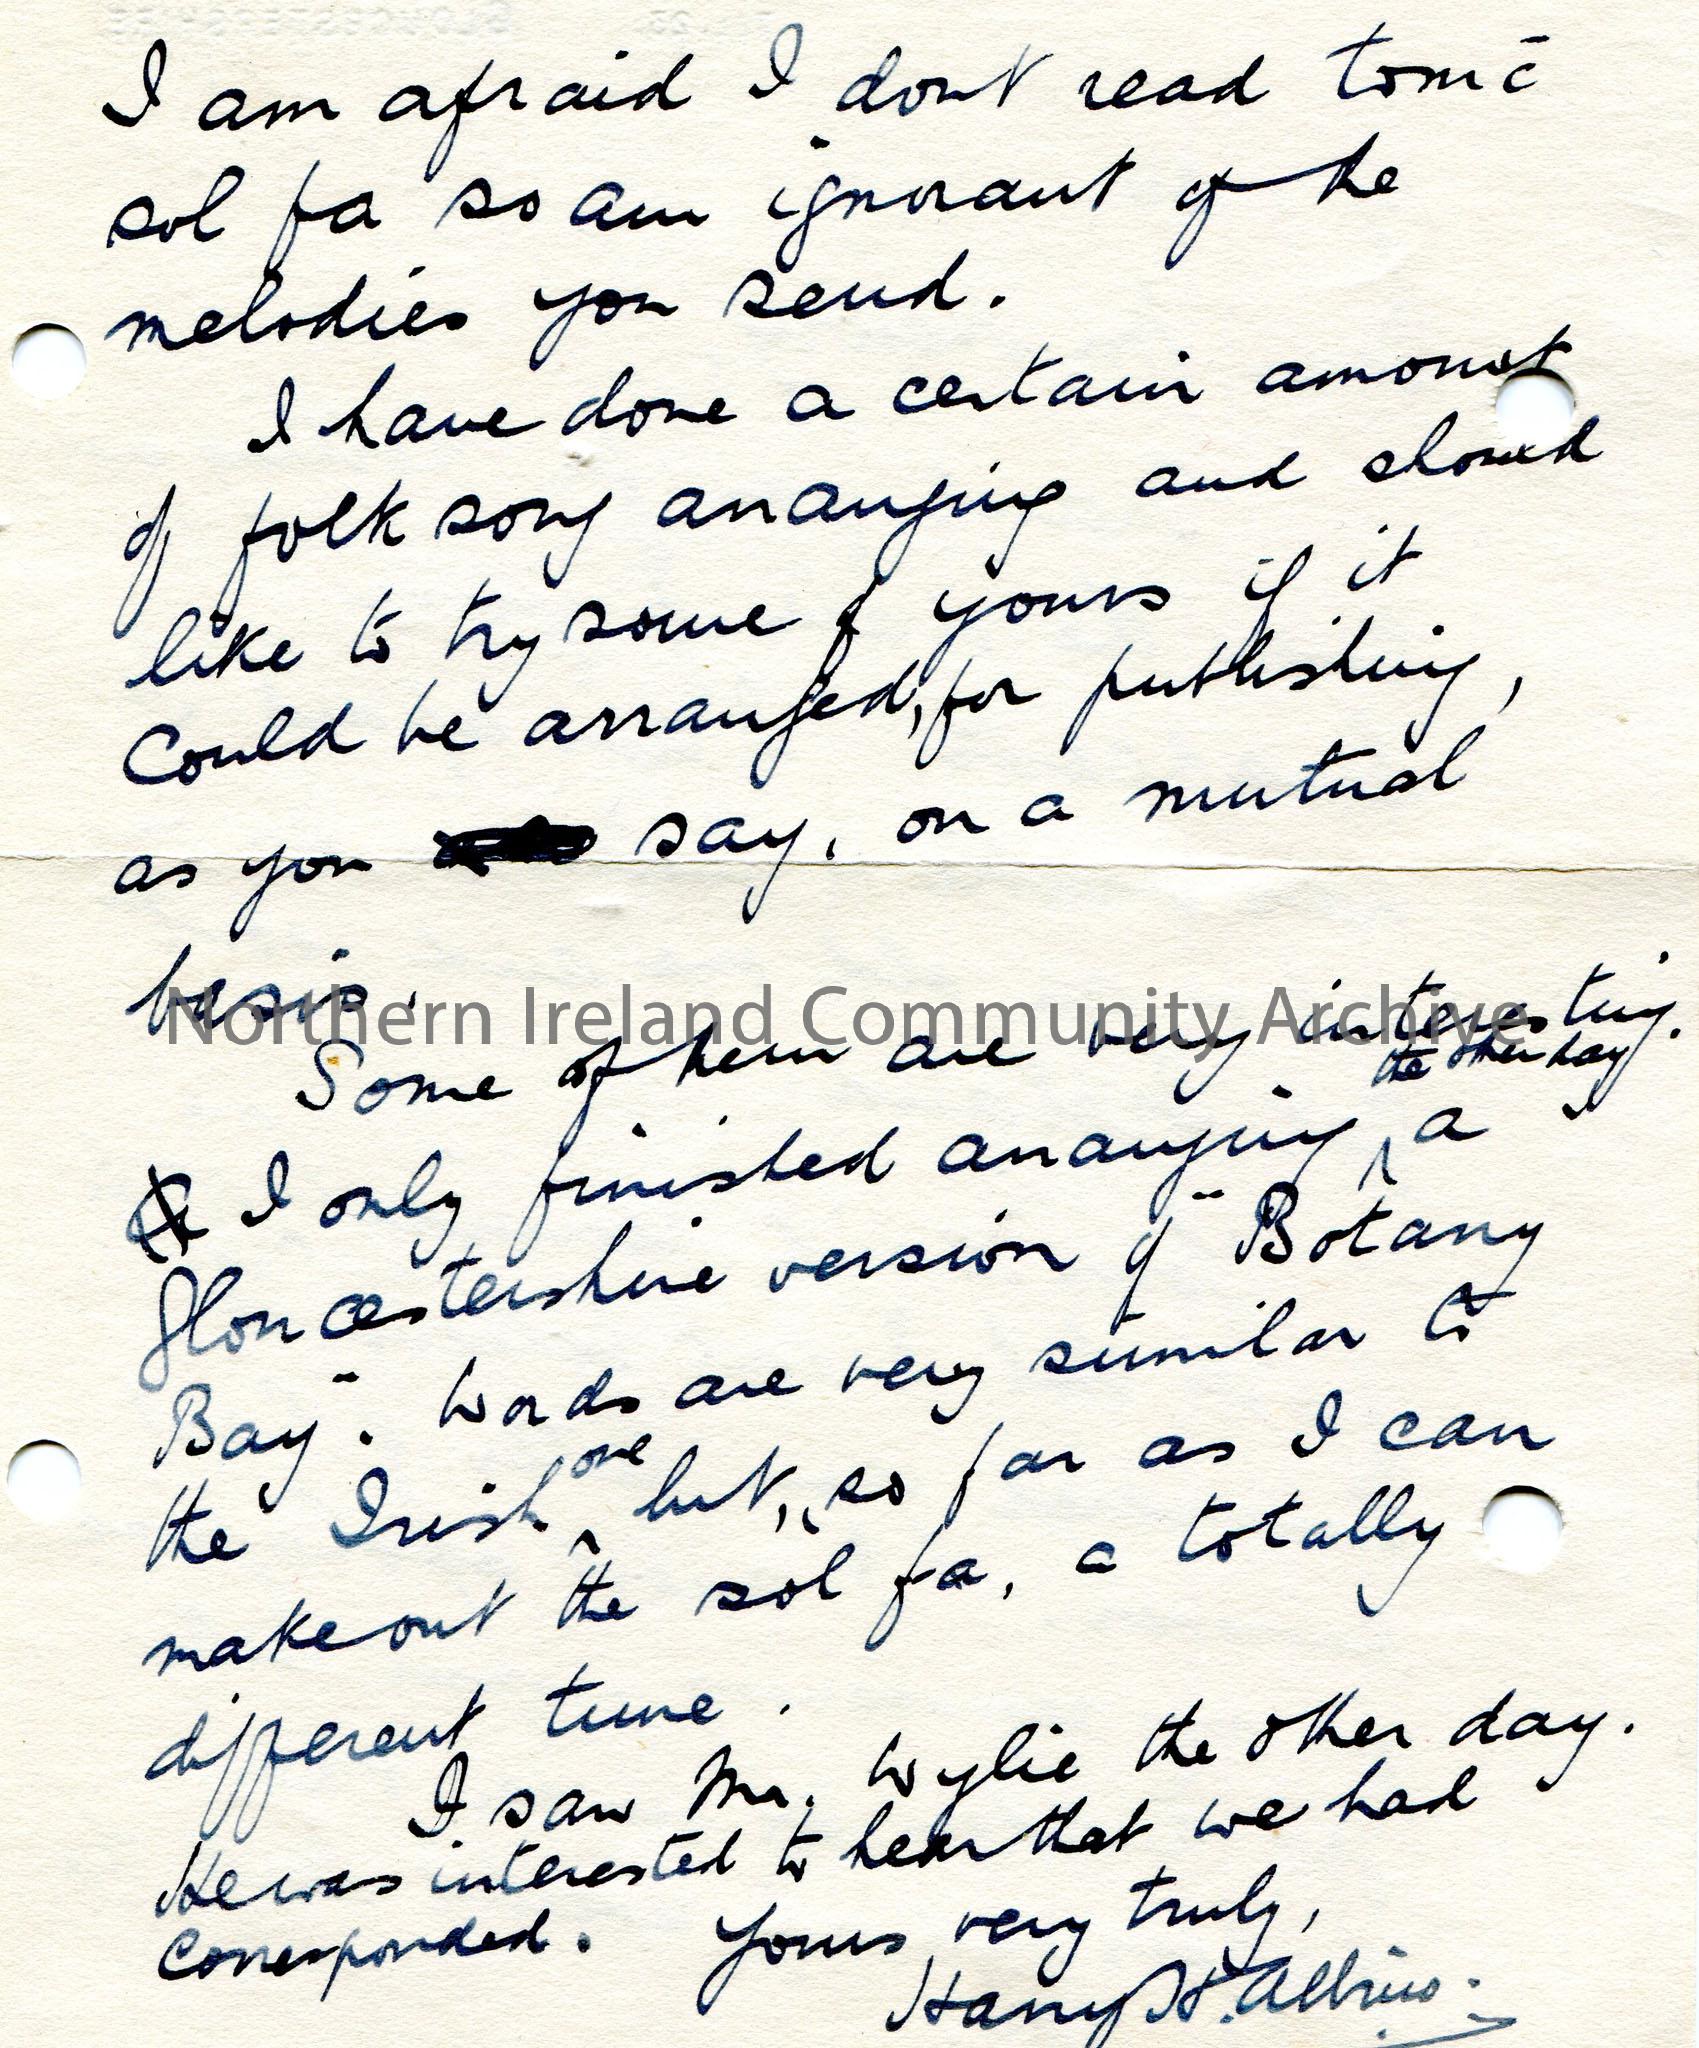 I am afraid I dont read tonic
sol fa so am ignorant of the
melodies you send.
I have done a certain amount
of folk song arranging and should
like to try some of yours if it
could be arranged, for publishing,
as you say, on a mutual
basis.
Northern Ireland Community Archive
Some of them are very interesting.
I only finished arranging the other day a
Gloucestershire version of "Botany
Bay". Words are very similar to
the Irish one but, so far as I can
make out the sol fa, a totally
different tune.
I saw Mr. Wylie the other day.
He was interested to hear that we had
corresponded. Yours very truly,
Harry H. Albino.